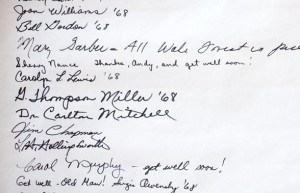 Joan Williams '68
Bill Gordon '68
Mary Garber - All Wake Forest is
Sherry Nance Thanks, Andy, and get well soon!
Carolyn L. Lewis '68
G. Thompson Miller '68
Dr. Carlton Mitchell
Jim Chapman
Hollingsworth
Carol Murphy - get well soon!
Get well - Old Man! Suzie '68